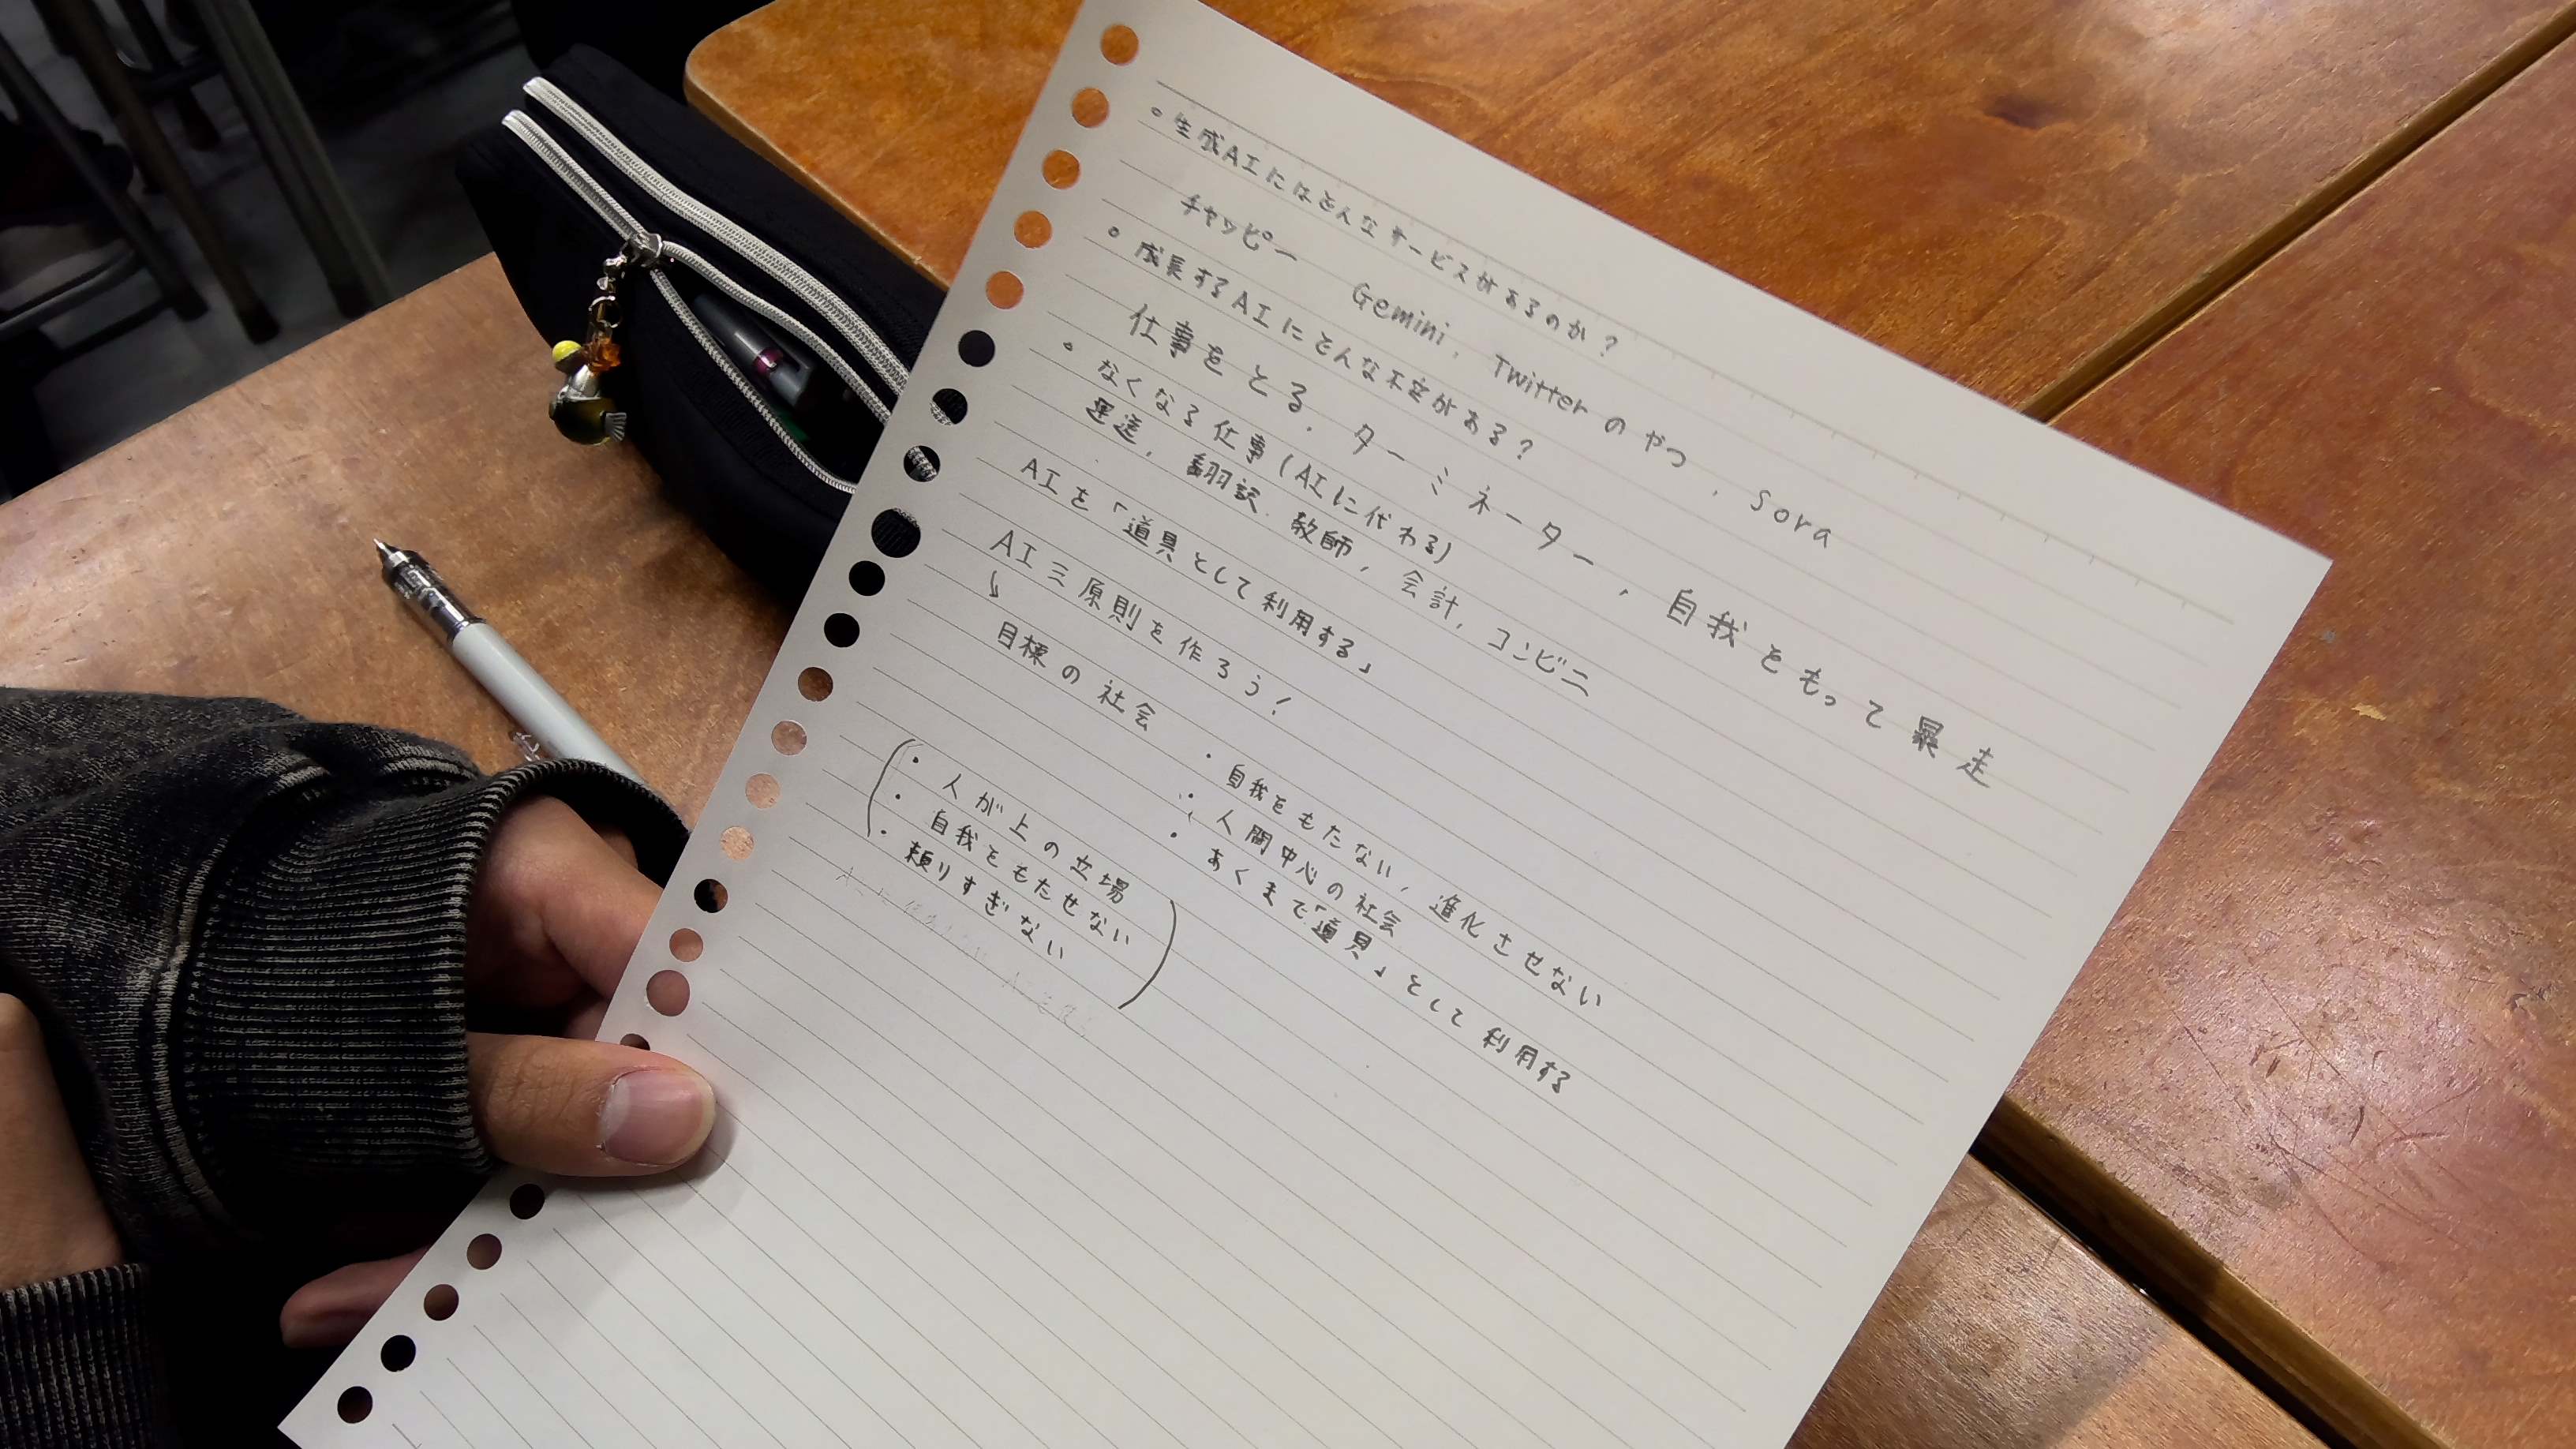 ○生成AIにはどんなサービスがあるのか？
チャッピー Gemini, Twitterのやつ, Sora
○成長するAIにどんな不安がある？
仕事をとる, ターミネーター, 自我をもって暴走
○なくなる仕事(AIに代わる)
運送, 翻訳, 教師, 会計, コンビニ
AIを「道具として利用する」
AI三原則を作ろう!
↓
目標の社会
・自我をもたない, 進化させない
・人間中心の社会
・あくまで「道具」として利用する
・人が上の立場
・自我をもたせない
・頼りすぎない